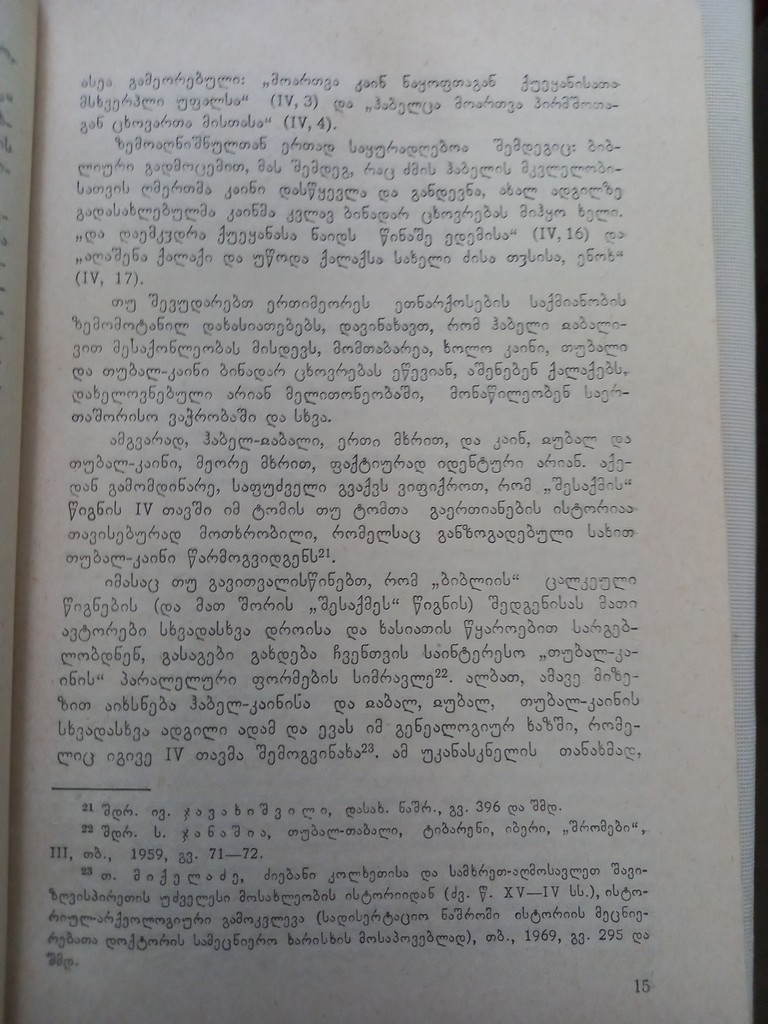 ასეა გამეორებული: „მოართვა კაინ ნაყოფთაგან ქუეყანისათა
მსხვერპლი უფალსა“ (IV, 3) და „ჰაბელცა მოართვა პირმშოთა-
გან ცხოვართა მისთასა“ (IV, 4).
ზემოაღნიშნულთან ერთად საყურადღებოა შემდეგიც: ბიბ-
ლიური გადმოცემით, მას შემდეგ, რაც ძმის ჰაბელის მკვლელობი-
სათვის ღმერთმა კაინი დასწყევლა და განდევნა, ახალ ადგილზე
გადასახლებულმა კაინმა კვლავ ბინადარ ცხოვრებას მიჰყო ხელი.
„და დაემკჳდრა ქუეყანასა ნაიდს წინაშე ედემისა“ (IV, 16) და
„აღაშენა ქალაქი და უწოდა ქალაქსა სახელი ძისა თჳსისა, ენოხ“
(IV, 17).
თუ შევუდარებთ ერთიმეორეს ეთნარქოსების საქმიანობის
ზემომოტანილ დახასიათებებს, დავინახავთ, რომ ჰაბელი ჲაბალი-
ვით მესაქონლეობას მისდევს, მომთაბარეა, ხოლო კაინი, თუბალი
და თუბალ-კაინი ბინადარ ცხოვრებას ეწევიან, აშენებენ ქალაქებს,
დახელოვნებული არიან მელითონეობაში, მონაწილეობენ საერ-
თაშორისო ვაჭრობაში და სხვა.
ამგვარად, ჰაბელ-ჲაბალი, ერთი მხრით, და კაინ, ჲუბალ და
თუბალ-კაინი, მეორე მხრით, ფაქტიურად იდენტური არიან. აქე-
დან გამომდინარე, საფუძველი გვაქვს ვიფიქროთ, რომ „შესაქმის“
წიგნის IV თავში იმ ტომის თუ ტომთა გაერთიანების ისტორიაა
თავისებურად მოთხრობილი, რომელსაც განზოგადებული სახით
თუბალ-კაინი წარმოგვიდგენს²¹.
იმასაც თუ გავითვალისწინებთ, რომ „ბიბლიის“ ცალკეული
წიგნების (და მათ შორის „შესაქმეს“ წიგნის) შედგენისას მათი
ავტორები სხვადასხვა დროისა და ხასიათის წყაროებით სარგებ-
ლობდნენ, გასაგები გახდება ჩვენთვის საინტერესო „თუბალ-კა-
ინის“ პარალელური ფორმების სიმრავლე²². ალბათ, ამავე მიზე-
ზით აიხსნება ჰაბელ-კაინისა და ჲაბალ, ჲუბალ, თუბალ-კაინის
სხვადასხვა ადგილი ადამ და ევას იმ გენეალოგიურ ხაზში, რომე-
ლიც იგივე IV თავმა შემოგვინახა²³. ამ უკანასკნელის თანახმად,
²¹ შდრ. ივ. ჯავახიშვილი, დასახ. ნაშრ., გვ. 396 და შმდ.
²² შდრ. ს. ჯანაშია, თუბალ-თაბალი, ტიბარენი, იბერი, „შრომები“,
III, თბ., 1959, გვ. 71—72.
²³ თ. მიქელაძე, ძიებანი კოლხეთისა და სამხრეთ-აღმოსავლეთ შავი-
ზღვისპირეთის უძველესი მოსახლეობის ისტორიიდან (ძვ. წ. XV—IV სს.), ისტო-
რიულ-არქეოლოგიური გამოკვლევა (სადისერტაციო ნაშრომი ისტორიის მეცნიე-
რებათა დოქტორის სამეცნიერო ხარისხის მოსაპოვებლად), თბ., 1969, გვ. 295 და
შმდ.
15